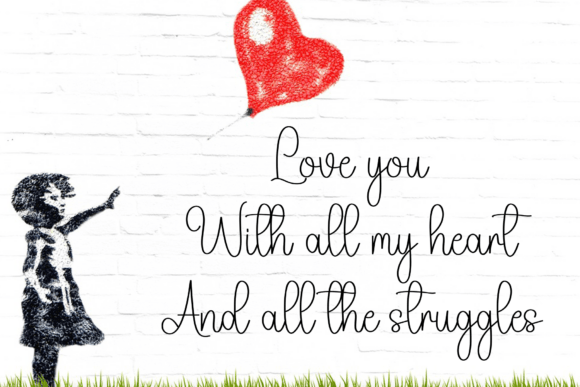 Love you
With all my heart
And all the struggles